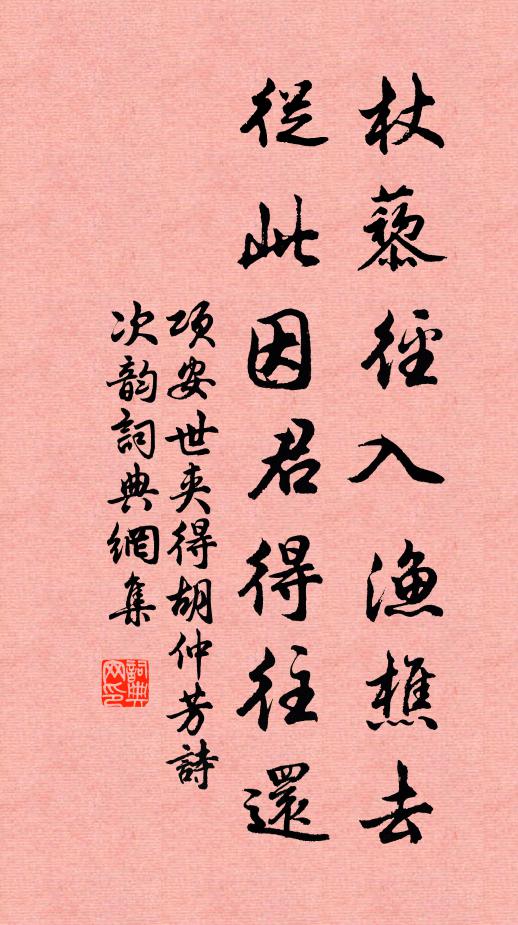 杖藜徑入漁樵去
從此因君得往還
項安世夾得胡仲芳詩
次韵詞典網集
詞典網印